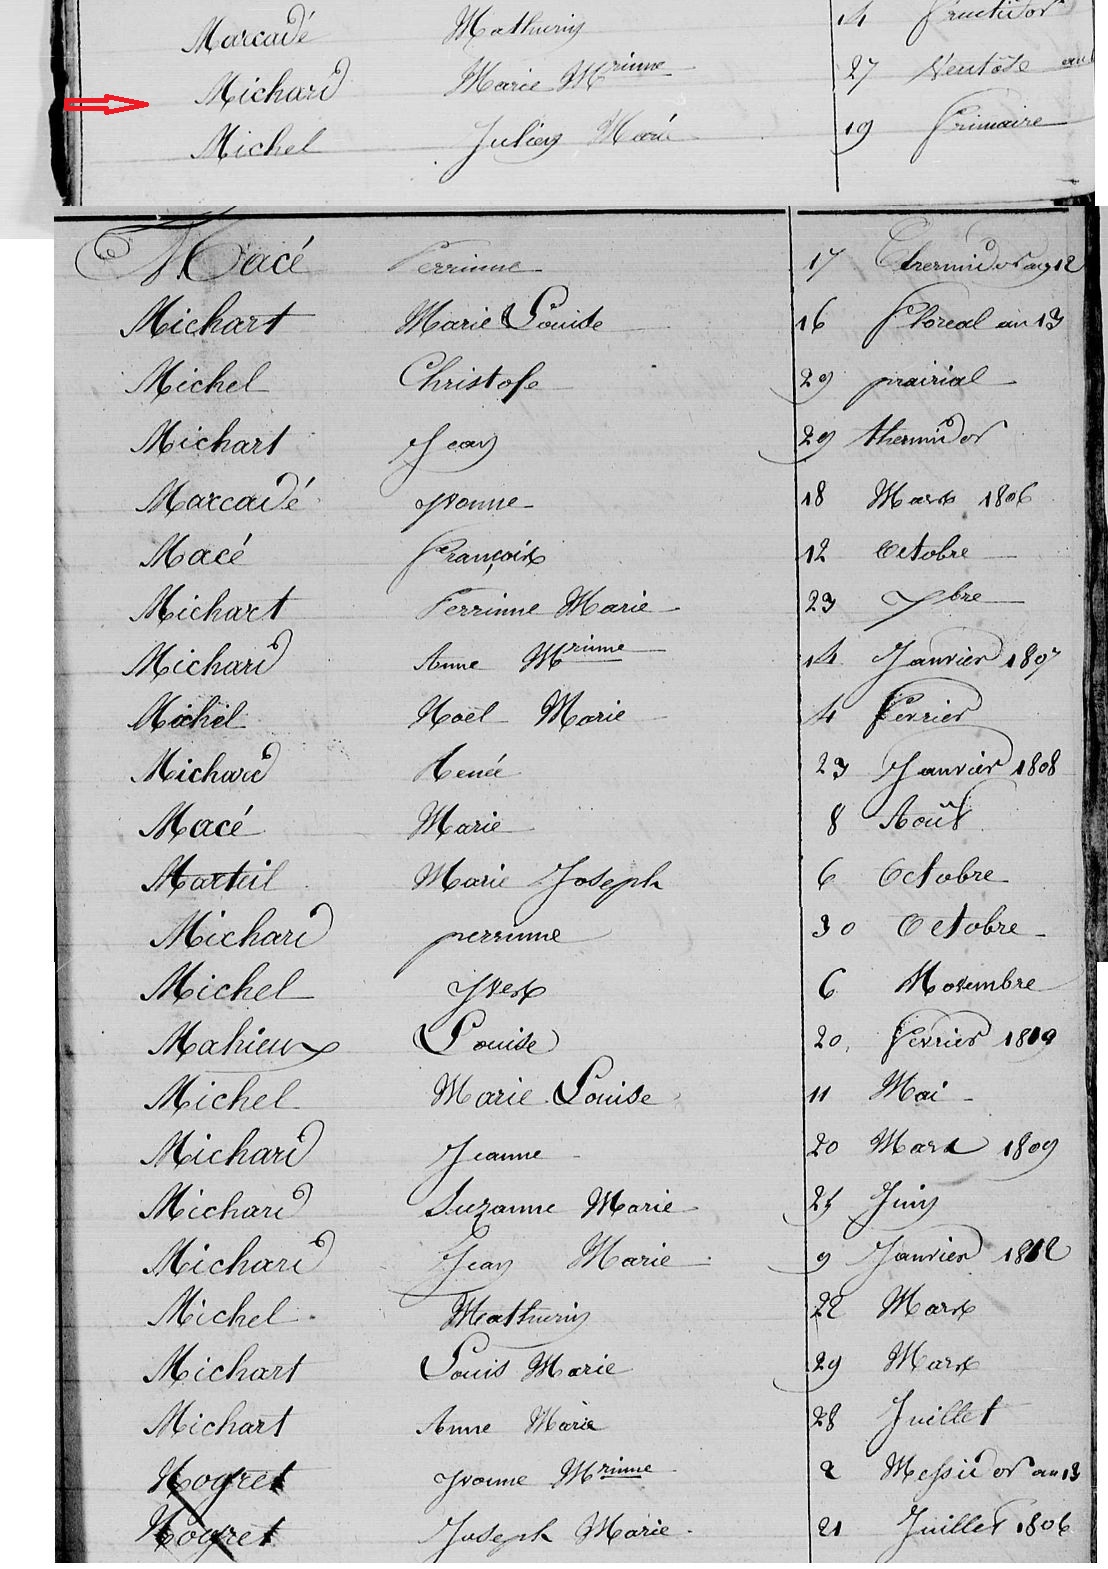 Marcadé Mathurin 14 fructidor
Michard Marie Mrinne 27 Ventôse an
Michel Julien Marie 19 frimaire
Macé Perrinne 17 Thermidor an 12
Michart Marie Louise 16 floreal an 13
Michel Christofe 29 prairial
Michart Jean 29 thermidor
Marcadé yvonne 18 Mars 1806
Macé françois 12 Octobre
Michart Perrinne Marie 23 7bre
Michard Anne Mrinne 14 Janvier 1807
Michel Noël Marie 4 fevrier
Michard Renée 23 Janvier 1808
Macé Marie 8 Août
Marteil Marie Joseph 6 Octobre
Michard perrinne 30 Octobre
Michel yves 6 Novembre
Mahieux Louise 20 fevrier 1819
Michel Marie Louise 11 Mai
Michard Jeanne 20 Mars 1809
Michard Suzanne Marie 25 Juin
Michard Jean Marie 9 Janvier 1812
Michel Mathurin 22 Mars
Michart Louis Marie 29 Mars
Michart Anne Marie 28 Juillet
Nogret yvonne Mrinne 2 Messidor an 13
Nogret Joseph Marie 21 Juillet 1806